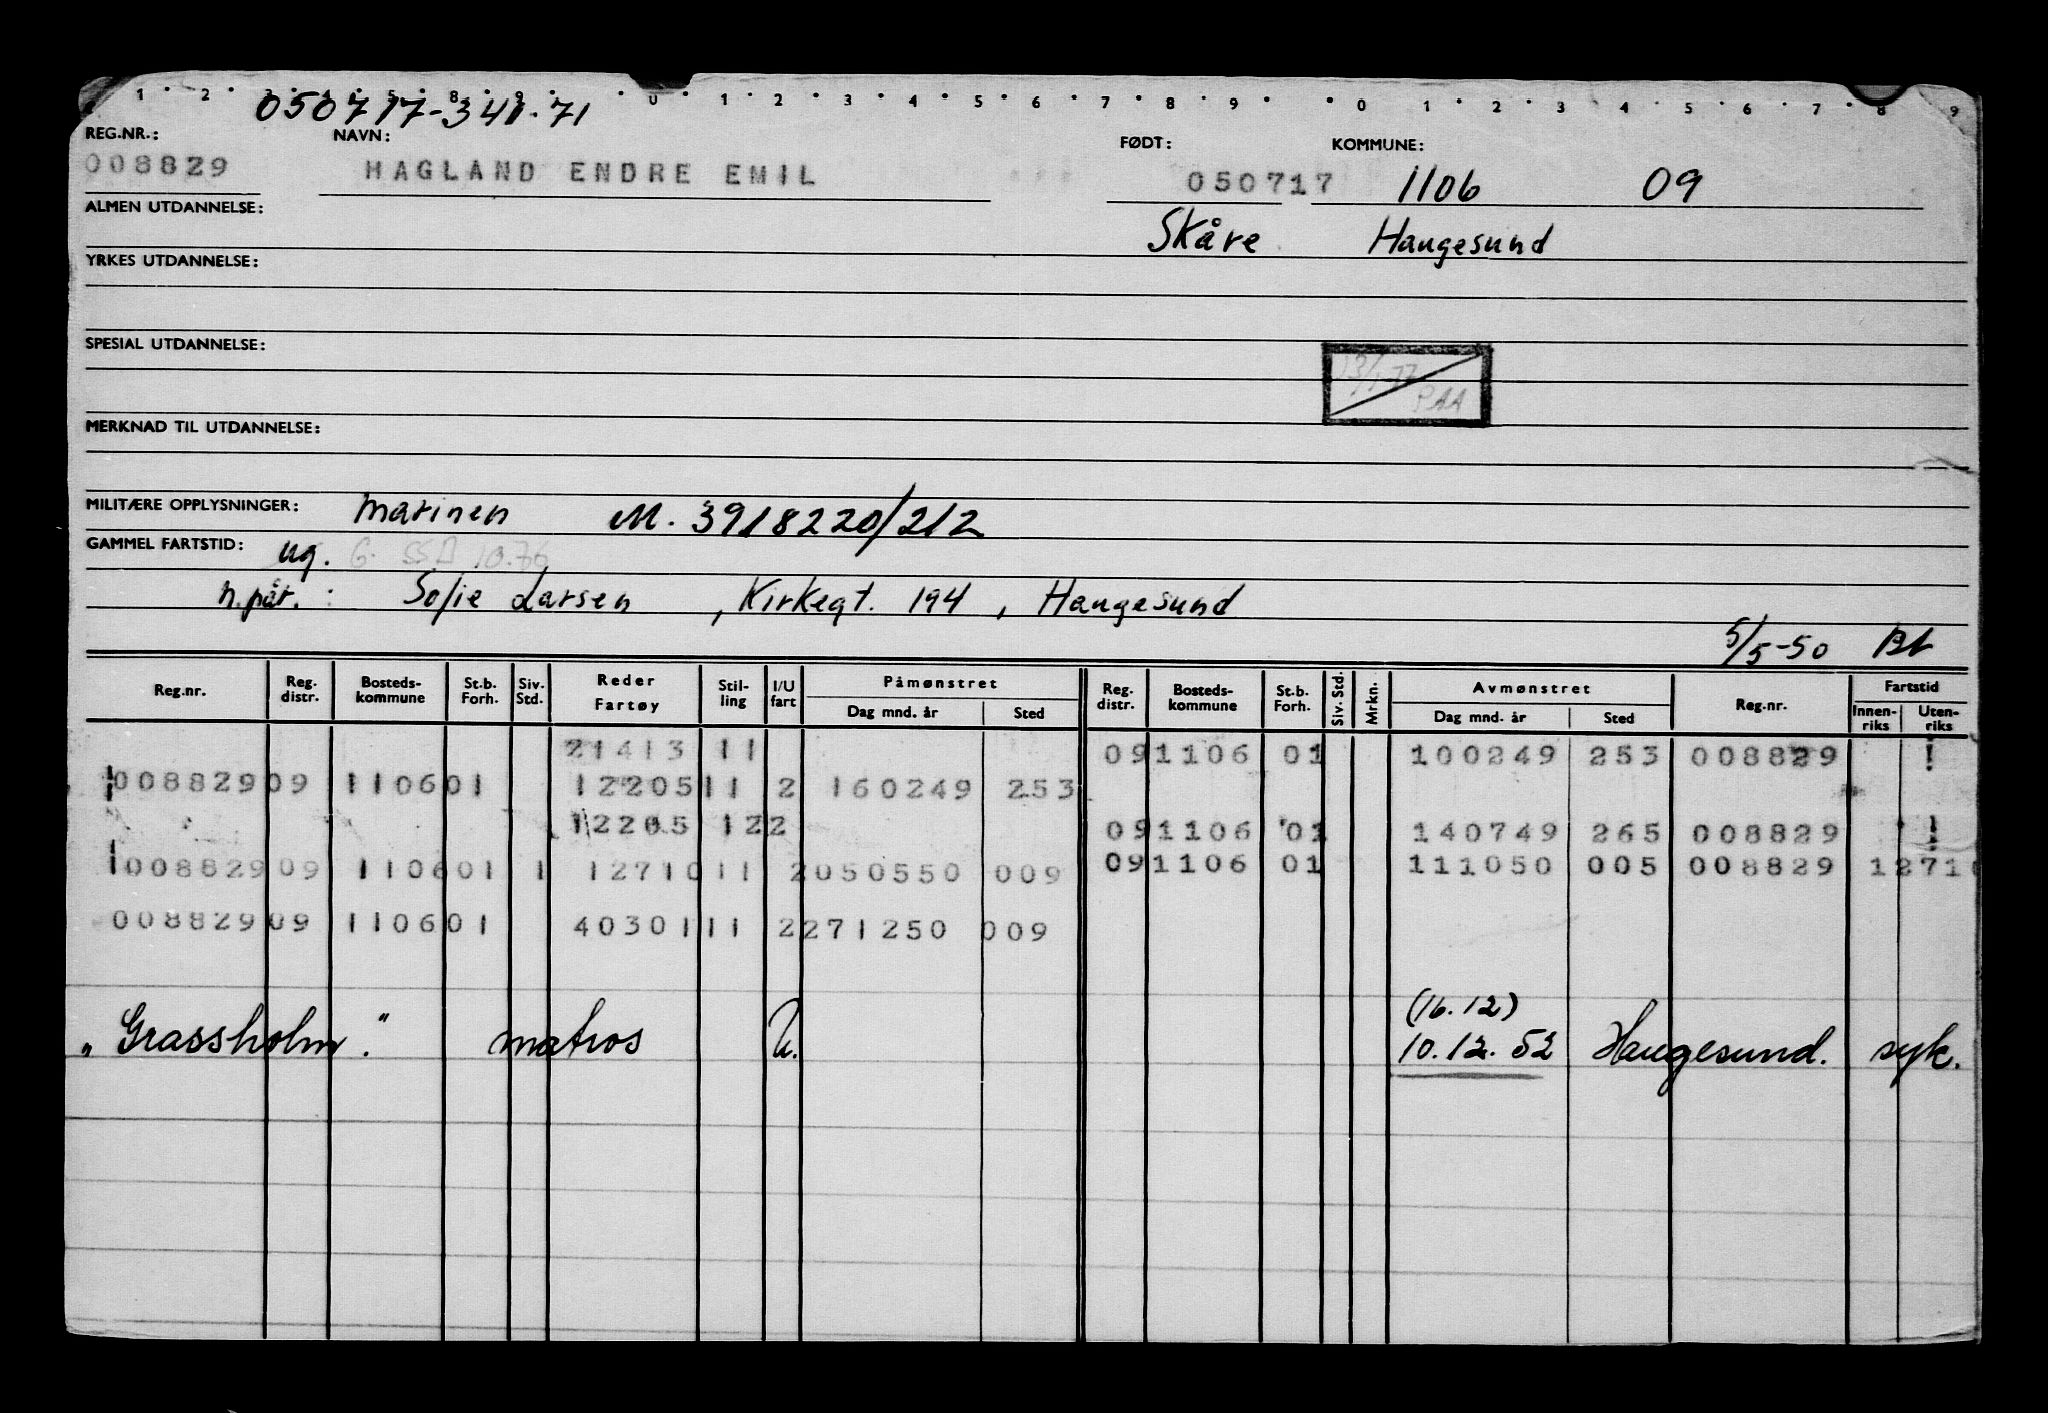 1 2 3 4 5 8 9 0 1 2 3 4 5 6 7 8 9 0 1 2 3 4 5 6 7 8 9
050717-341.71
REG.NR.: NAVN: FØDT: KOMMUNE:
008829 HAGLAND ENDRE EMIL 050717 1106 09
ALMEN UTDANNELSE: Skåre Haugesund
YRKES UTDANNELSE:
SPESIAL UTDANNELSE:
13/1-77
PAA
MERKNAD TIL UTDANNELSE:
MILITÆRE OPPLYSNINGER: Marinen M. 3918220/212
GAMMEL FARTSTID: ug. G. 10.76
n.pår. : Sofie Larsen, Kirkegt. 194, Haugesund
5/5-50
Reg.nr. Reg. distr. Bosteds-kommune St.b. Forh. Siv. Std. Reder Fartøy Stil-ling I/U fart Påmønstret Dag mnd. år Sted Reg. distr. Bosteds-kommune St.b. Forh. Siv. Std. Mrkn. Avmønstret Dag mnd. år Sted Reg.nr. Fartstid Innen-riks Uten-riks
21413 11 091106 01 100249 253 008829
008829 09 1106 01 12205 11 2 160249 253
12205 12 2 091106 01 140749 265 008829
008829 09 1106 01 1 12710 11 2 050550 009 091106 01 111050 005 008829 1271
008829 09 1106 01 40301 11 2 271250 009
(16.12)
„Grassholm." matros U. 10.12.52 Haugesund. syk.